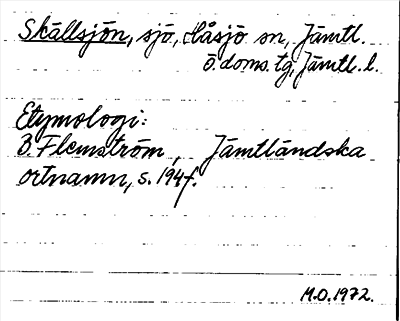 Skällsjön, sjö, Håsjö sn, Jämtl.
ö. doms. tg, Jämtl. l.
Etymologi:
B. Flemström, Jämtländska
ortnamn, s. 194 f.
M.O. 1972.